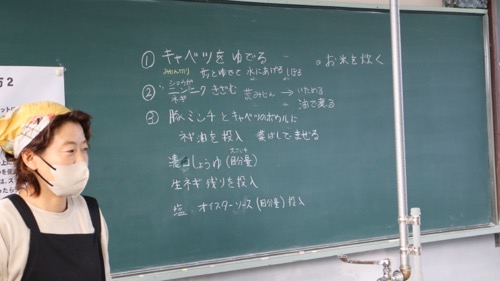 ① キャベツをゆでる
。お米を炊く
みじんぎり さっとゆでて 水にあげる しぼる
② しょうが
ニンニク きざむ 荒みじん → いためる
ネギ → 油で煮る
③ 豚ミンチとキャベツのボウルに
ネギ油を投入 菜ばしでまぜる
濃口しょうゆ(自分量)
生ネギ 残りを投入
塩、オイスターソース(自分量) 投入